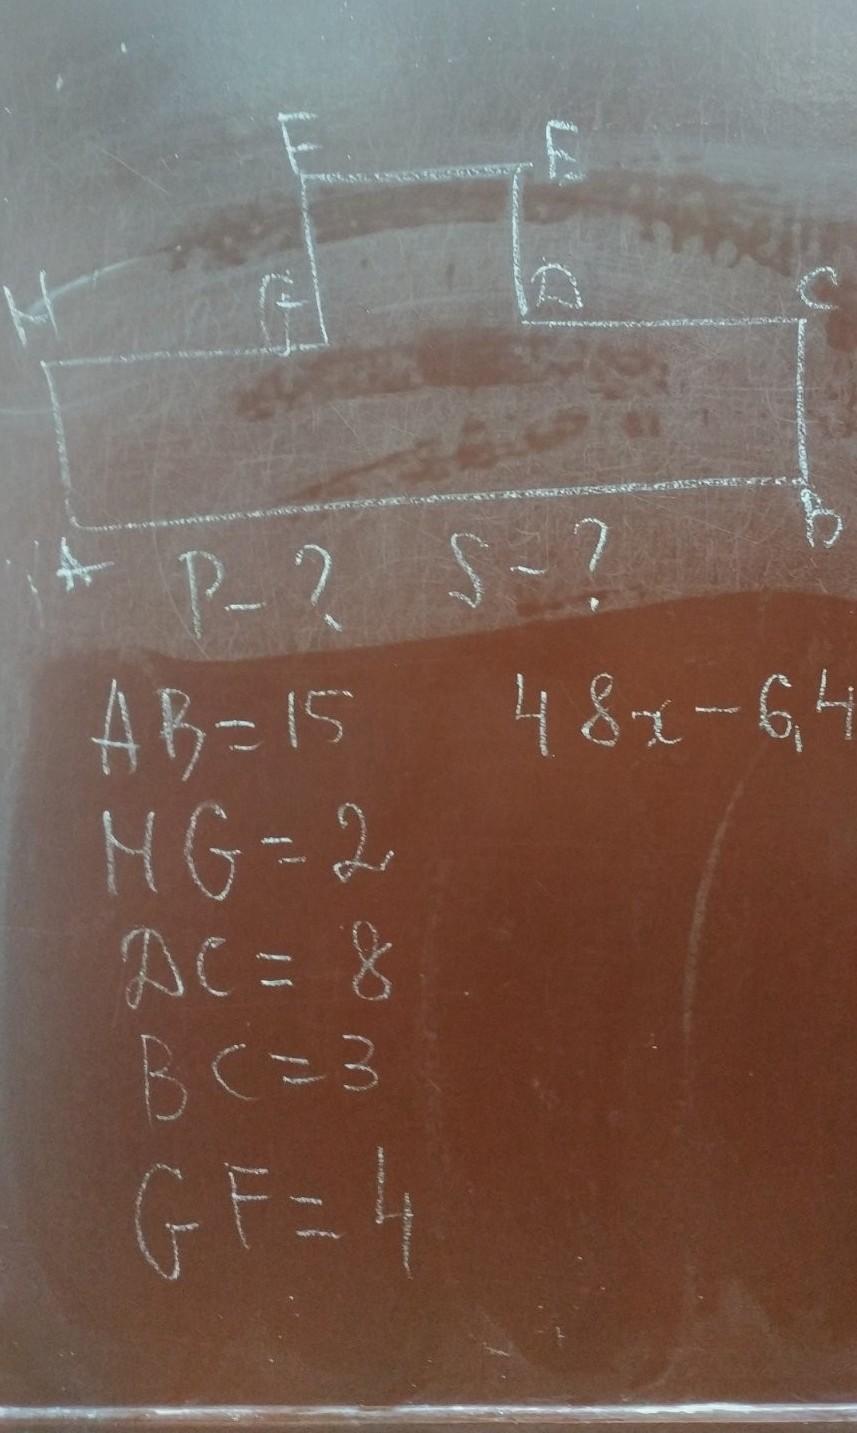 F E
H G D C
A B
P - ? S - ?
AB = 15 48x - 6,4
HG = 2
DC = 8
BC = 3
GF = 4